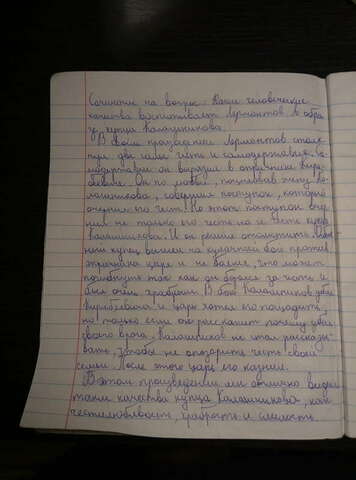 Сочинение на вопрос: Какие человеческие
качества воспитывает Лермонтов в обра-
зу купца Калашникова.
В своём произведении Лермонтов столк-
нул две силы честь и самодержавие. Са-
модержавие он выразил в опричнике Кири-
бееви­че. Он по любви, поцеловав жену Ка-
лашникова, совершил поступок, который
очернил его честь. Но этот поступок очер-
нил не только его честь но и честь купца
Калашникова. И он решил отомстить. Так
купец вышел на кулачный бой против
опричника царя и не важно, что может
погибнуть так как он дрался за честь и
был очень храбрым. В бою Калашников убил
Кирибеевича и царь хотел его пощадить,
но только если он расскажет почему убил
своего врага. Калашников не стал рассказы-
вать, чтобы не опозорить честь своей
семьи. После этого царь его казнил.
В этом произведении мы отлично видим
такие качества купца Калашникова, как
честолюбивость, храбрость и смелость.